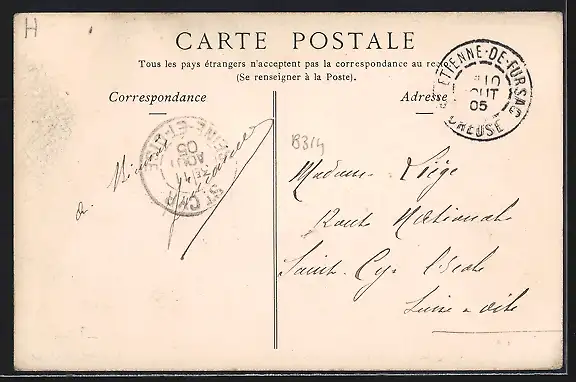 H
CARTE POSTALE
Tous les pays étrangers n'acceptent pas la correspondance au recto
(Se renseigner à la Poste).
Correspondance
Adresse
ETIENNE-DE-FURSAC
10
OUT
05
CREUSE
SEINE-ET-OISE
11
AOUT
05
ST CYR
B314
Madame Liège
Route Nationale
Saint-Cyr l'Ecole
Seine & Oise